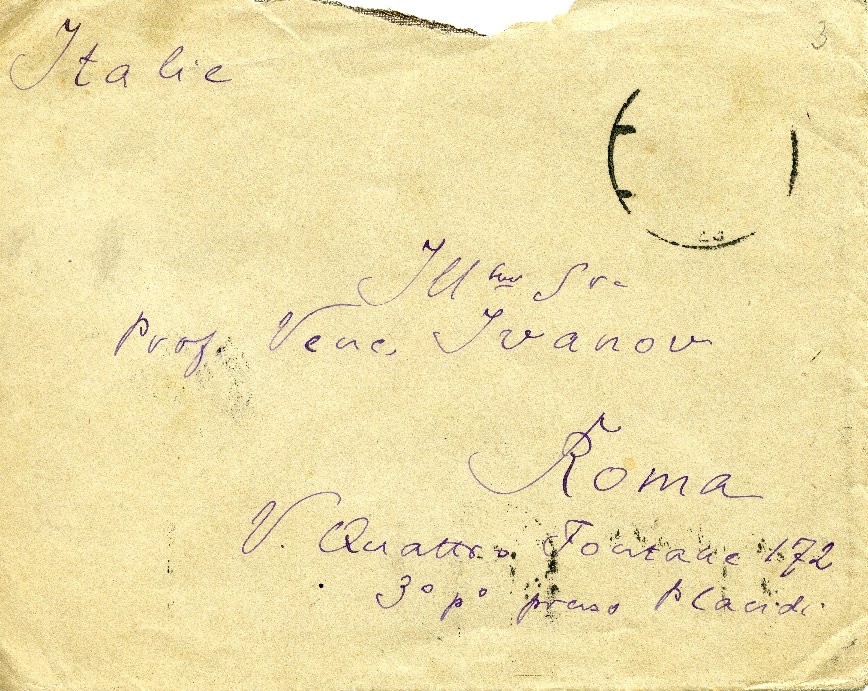 Italie
3
Ill^mo Sr.
Prof. Venc. Ivanov
Roma
V. Quattro Fontane 172
3° p° presso Placidi